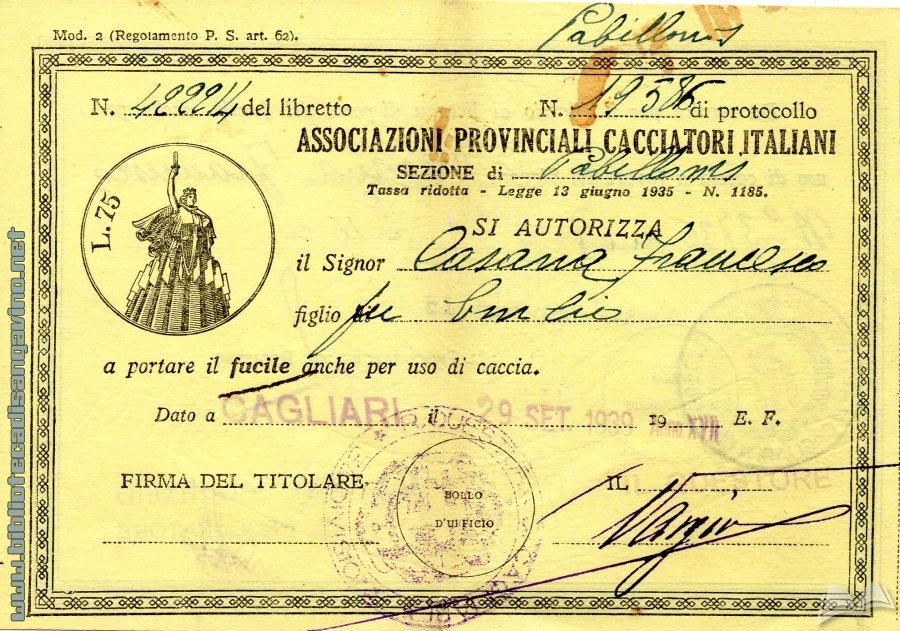 Pabillonis
Mod. 2 (Regolamento P. S. art. 62).
N. 42224 del libretto N. 19586 di protocollo
ASSOCIAZIONI PROVINCIALI CACCIATORI ITALIANI
SEZIONE di Pabillonis
Tassa ridotta - Legge 13 giugno 1935 - N. 1185.
L. 75
SI AUTORIZZA
il Signor Casana Francesco
figlio fu Emilio
a portare il fucile anche per uso di caccia.
Dato a CAGLIARI il 29 SET. 1939 19 Anno XVII E. F.
FIRMA DEL TITOLARE
IL QUESTORE
BOLLO
D'UFFICIO
www.bibliotecadisangavino.net